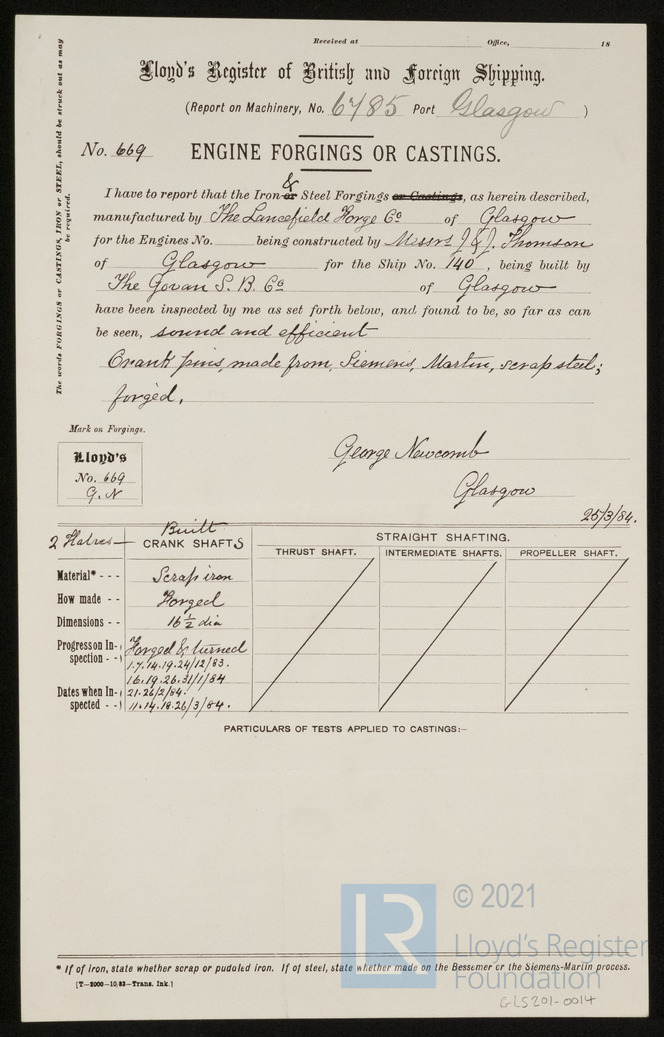 Received at Office, 18
Lloyd's Register of British and Foreign Shipping.
(Report on Machinery, No. 6785 Port Glasgow )
No. 669 ENGINE FORGINGS OR CASTINGS.
&
I have to report that the Iron or Steel Forgings or Castings, as herein described,
manufactured by The Lancefield Forge Co of Glasgow
for the Engines No. being constructed by Messrs J & J. Thomson
of Glasgow for the Ship No. 140, being built by
The Govan S. B. Co of Glasgow
have been inspected by me as set forth below, and found to be, so far as can
be seen, sound and efficient
Crank pins, made from, Siemens, Martin, scrap steel;
forged,
The words FORGINGS or CASTINGS, IRON or STEEL, should be struck out as may
be required.
Mark on Forgings.
Lloyd's
No. 669
G. N
George Newcomb
Glasgow
25/3/84.
2 Halves Built CRANK SHAFTS
STRAIGHT SHAFTING.
THRUST SHAFT. INTERMEDIATE SHAFTS. PROPELLER SHAFT.
Material* - - - Scrap iron
How made - - Forged
Dimensions - - 16 1/2 dia
Progress on In- Forged & turned
spection - - 1.7.14.19.24/12/83.
16.19.26.31/1/84
Dates when In- 21.26/2/84.
spected - - 11.14.18.26/3/84.
PARTICULARS OF TESTS APPLIED TO CASTINGS:-
* If of iron, state whether scrap or puduled iron. If of steel, state whether made on the Bessemer or the Siemens-Martin process.
[T-2000-10,83-Trans. Ink.]
LR
© 2021
Lloyd's Register
Foundation
GLS201-0014